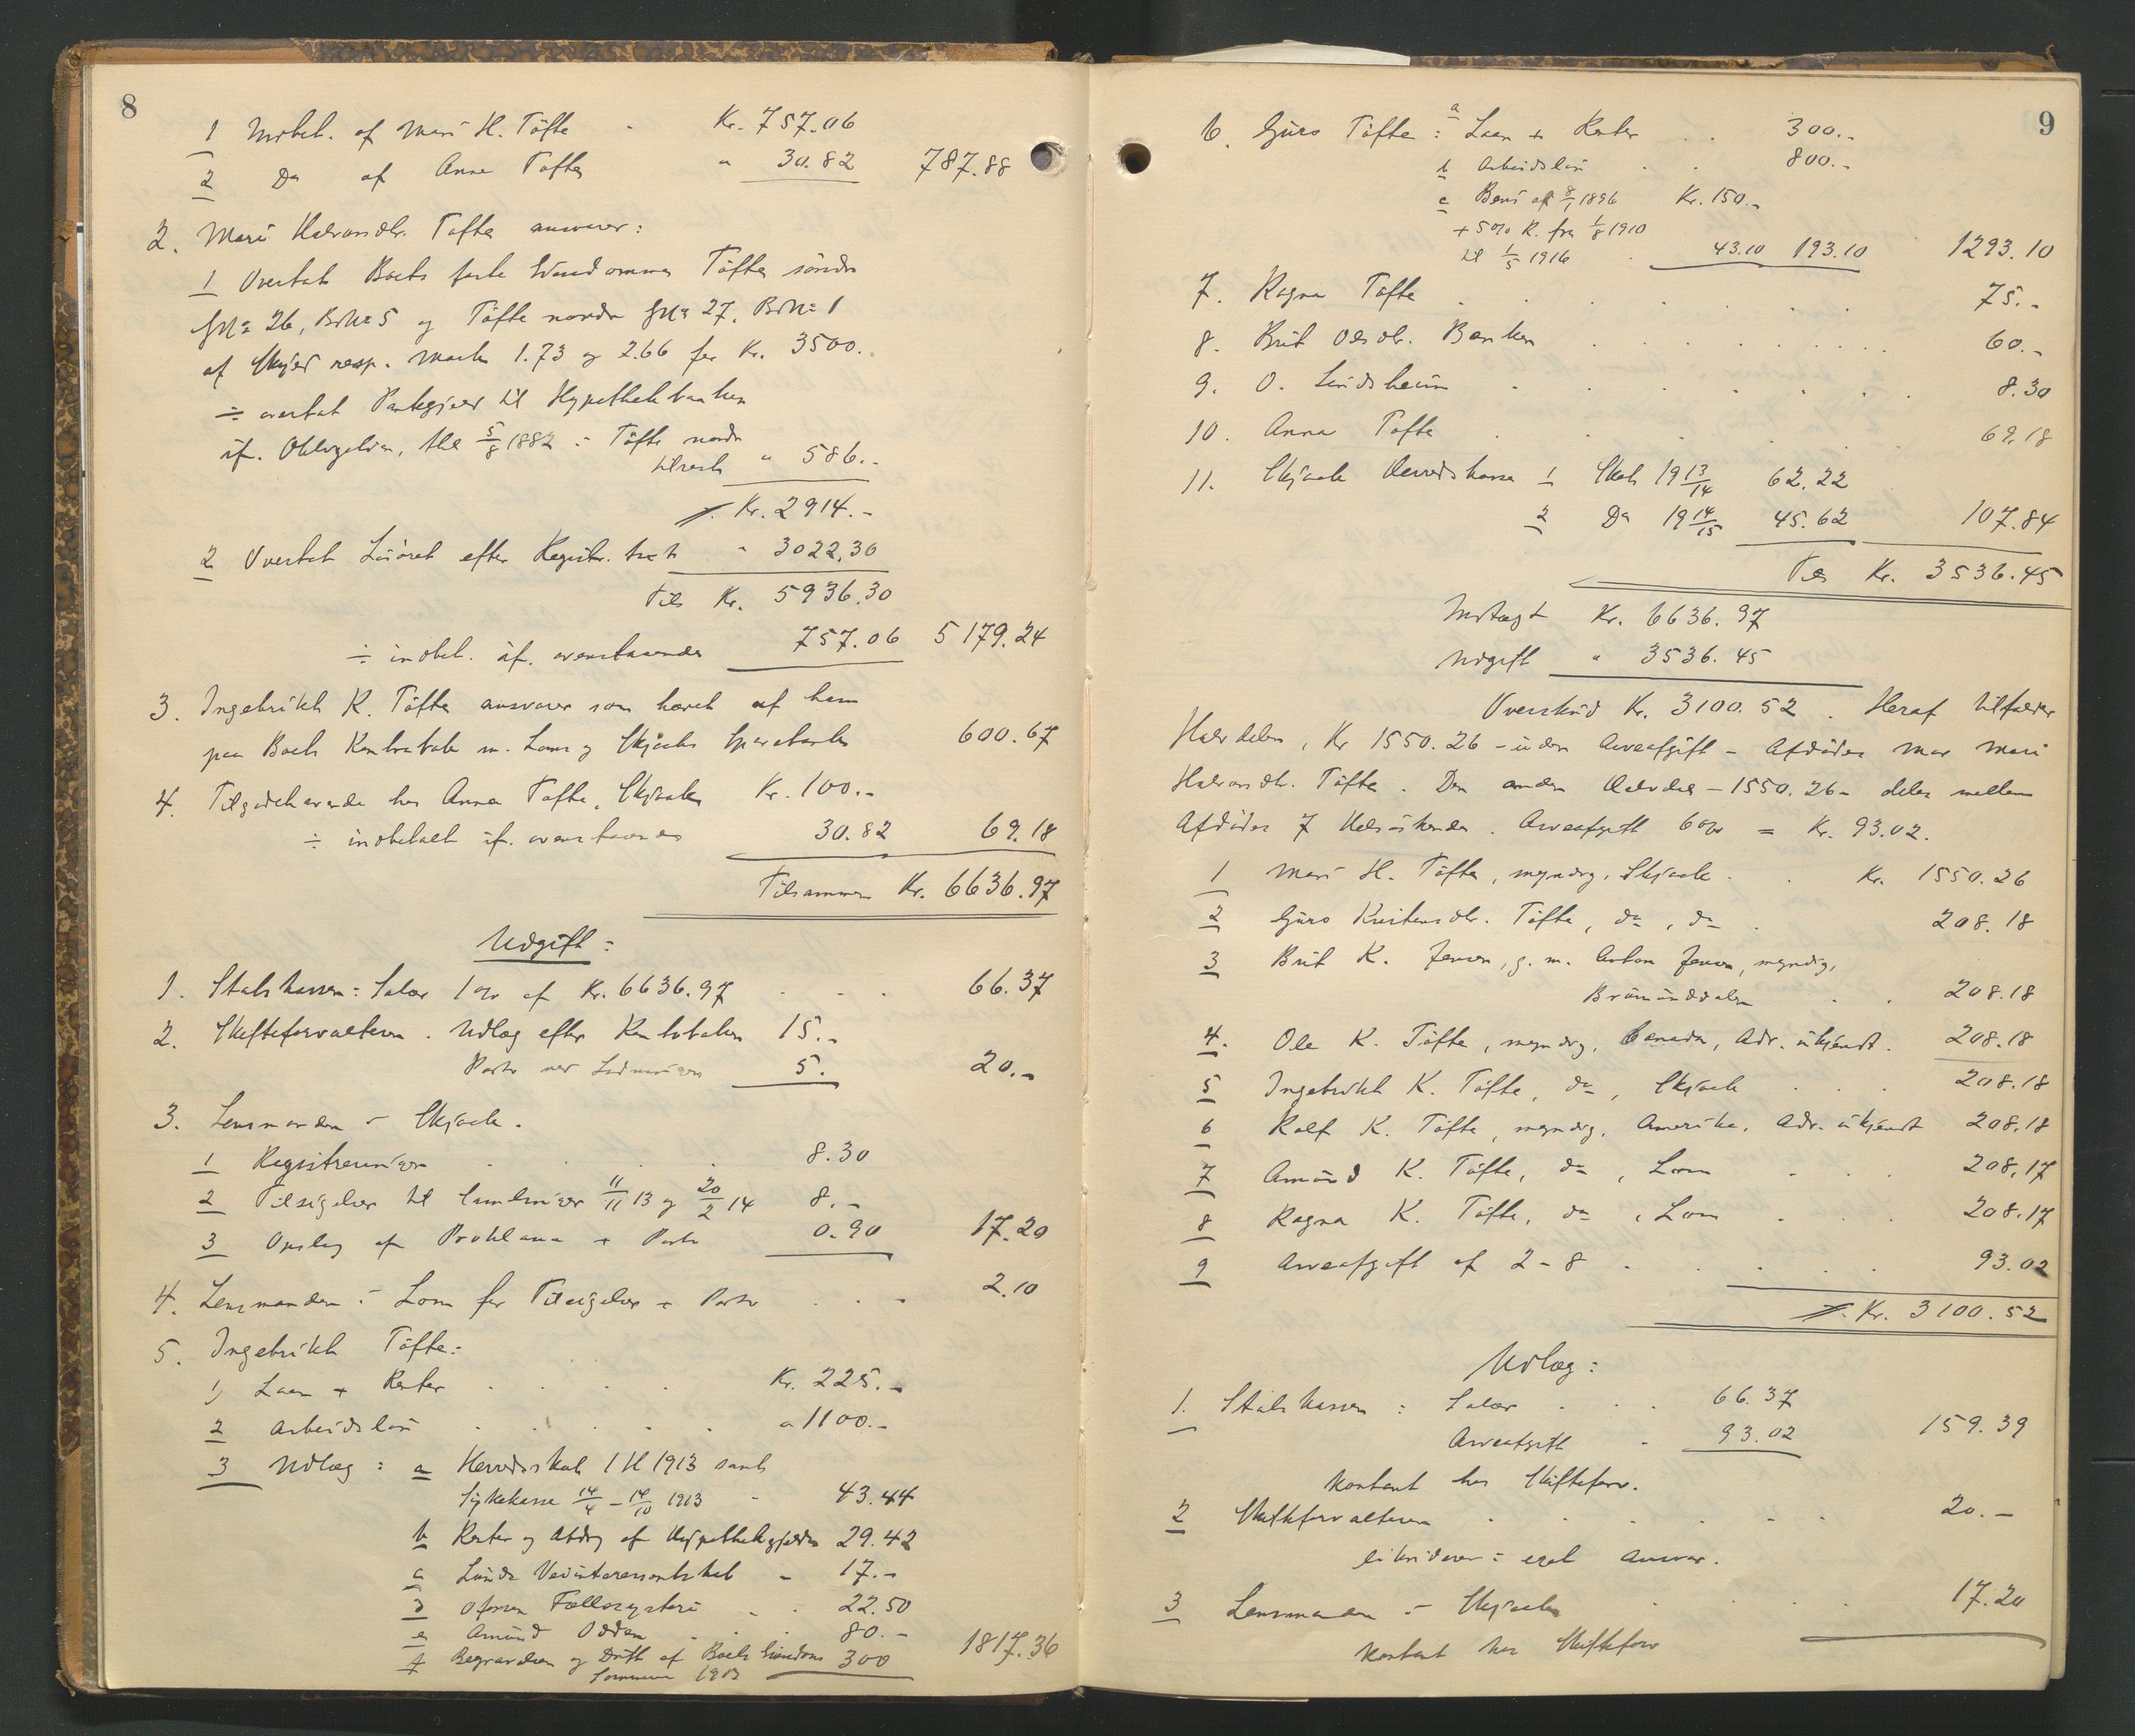 8
1 Indbet. af Mari H. Tøfte - Kr. 757.06
2 Do af Anna Tofte " 30.82 787.88
2. Mari Halvorsdtr. Tofte ansvarer:
1 Overtat Boets faste Eiendomme Tøfte søndre
GNo 26, BNo 5 og Tøfte nordre GNo 27, BNo 1
af Skyld resp. Mark 1.73 og 2.66 for Kr. 3500.-
÷ overtat Pantegjæld til Hypothekbanken
if. Obligation, thl 5/8 1882 i Tøfte nordre
tilrest " 586.-
Kr. 2914.-
2 Overtat Løsøret efter Registr. takst " 3022.30
Tils Kr. 5936.30
÷ indbet. if. ovenstaaende 757.06 5179.24
3. Ingebrikt K. Tøfte ansvarer som hævet af ham
paa Boets Kontrabok m. Lom og Skjaaks Sparebank 600.67
4. Tilgodehavende hos Anna Tofte, Skjaak Kr. 100.-
÷ indbetalt if. ovenstaaende 30.82 69.18
Tilsammen Kr. 6636.97
Udgift:
1. Statskassen: Salær 1 % af Kr. 6636.97 - - - 66.37
2. Skifteforvalteren. Udlæg efter Kontoboken 15.-
Porto ved 5. 20.-
3. Lensmanden i Skjaak.
1 Registreringen . . . 8.30
2 Tilsigelser til Samlinger 11/11 13 og 20/2 14 8.-
3 Opslag af Proklama + Porto 0.90 17.20
4. Lensmanden i Lom for Tilsigelse + Porto . . - 2.10
5. Ingebrikt Tøfte:
1) Laan + Renter . . . . Kr. 225.-
2 Arbeidsløn . . . . " 1100.-
3 Udlæg: a Herredsskat 1 H 1913 samt
Sykekasse 14/4 - 14/10 1913 - 43.44
b Renter og Afdrag af Hypothekgjælden 29.42
c Veiinteressentskab - 17.-
d Ofossen Fællesysteri - . 22.50
e Amund Odden . . 80.-
f Begravelsen og Drift af Boets Eiendom 300 1817.36
Sommeren 1913
9
6. Guro Tøfte: a Laan + Renter . . 300.-
b Arbeidsløn . . 800.-
c Bevis af 8/1 1896 Kr. 150.-
+ 5 % R. fra 1/8 1910
til 1/5 1916 . 43.10 193.10 1293.10
7. Ragna Tofte . . . . . . . 75.-
8. Brit Olsdtr. Bakken . . . . . . . . . 60.-
9. O. Lindsheim - . . . . . . 8.30
10. Anna Tofte . . . . . . 69.18
11. Skjaak Herredskasse 1 Skat 1913/14 62.22
2 Do 1914/15 45.62 107.84
Tils Kr. 3536.45
Indtægt Kr. 6636.97
Udgift " 3536.45
Overskud Kr. 3100.52. Heraf tilfalder
Halvdelen, Kr 1550.26 - uden Arveafgift - Afdødes Mor Mari
Halvorsdtr. Tøfte. Den anden Halvdel - 1550.26 - deles mellem
Afdødes 7 Helsøskende. Arveafgift 6 % = Kr. 93.02.
1 Mari H. Tøfte, myndig, Skjaak . . Kr. 1550.26
2 Guro Kristensdtr. Tøfte, do, do . 208.18
3 Brit K. Jensen, g. m. Anton Jensen, myndig,
Brumunddalen . . 208.18
4. Ole K. Tøfte, myndig, Canada, Adr. ukjendt. 208.18
5 Ingebrikt K. Tøfte, do, Skjaak . . . 208.18
6 Rolf K. Tøfte, myndig, Amerika, Adr. ukjendt 208.18
7 Amund K. Tøfte, do, Lom - . . 208.17
8 Ragna K. Tøfte, do, Lom . . . 208.17
9 Arveafgift af 2 - 8 . . . . . 93.02
Kr. 3100.52
Udlæg:
1. Statskassen: Salær . . . 66.37
Arveafgift - 93.02 159.39
kontant hos Skifteforv.
2 Skifteforvalteren . . . . - - . 20.-
likviderer: eget Ansvar.
3 Lensmanden i Skjaak . . . . 17.20
kontant hos Skifteforv